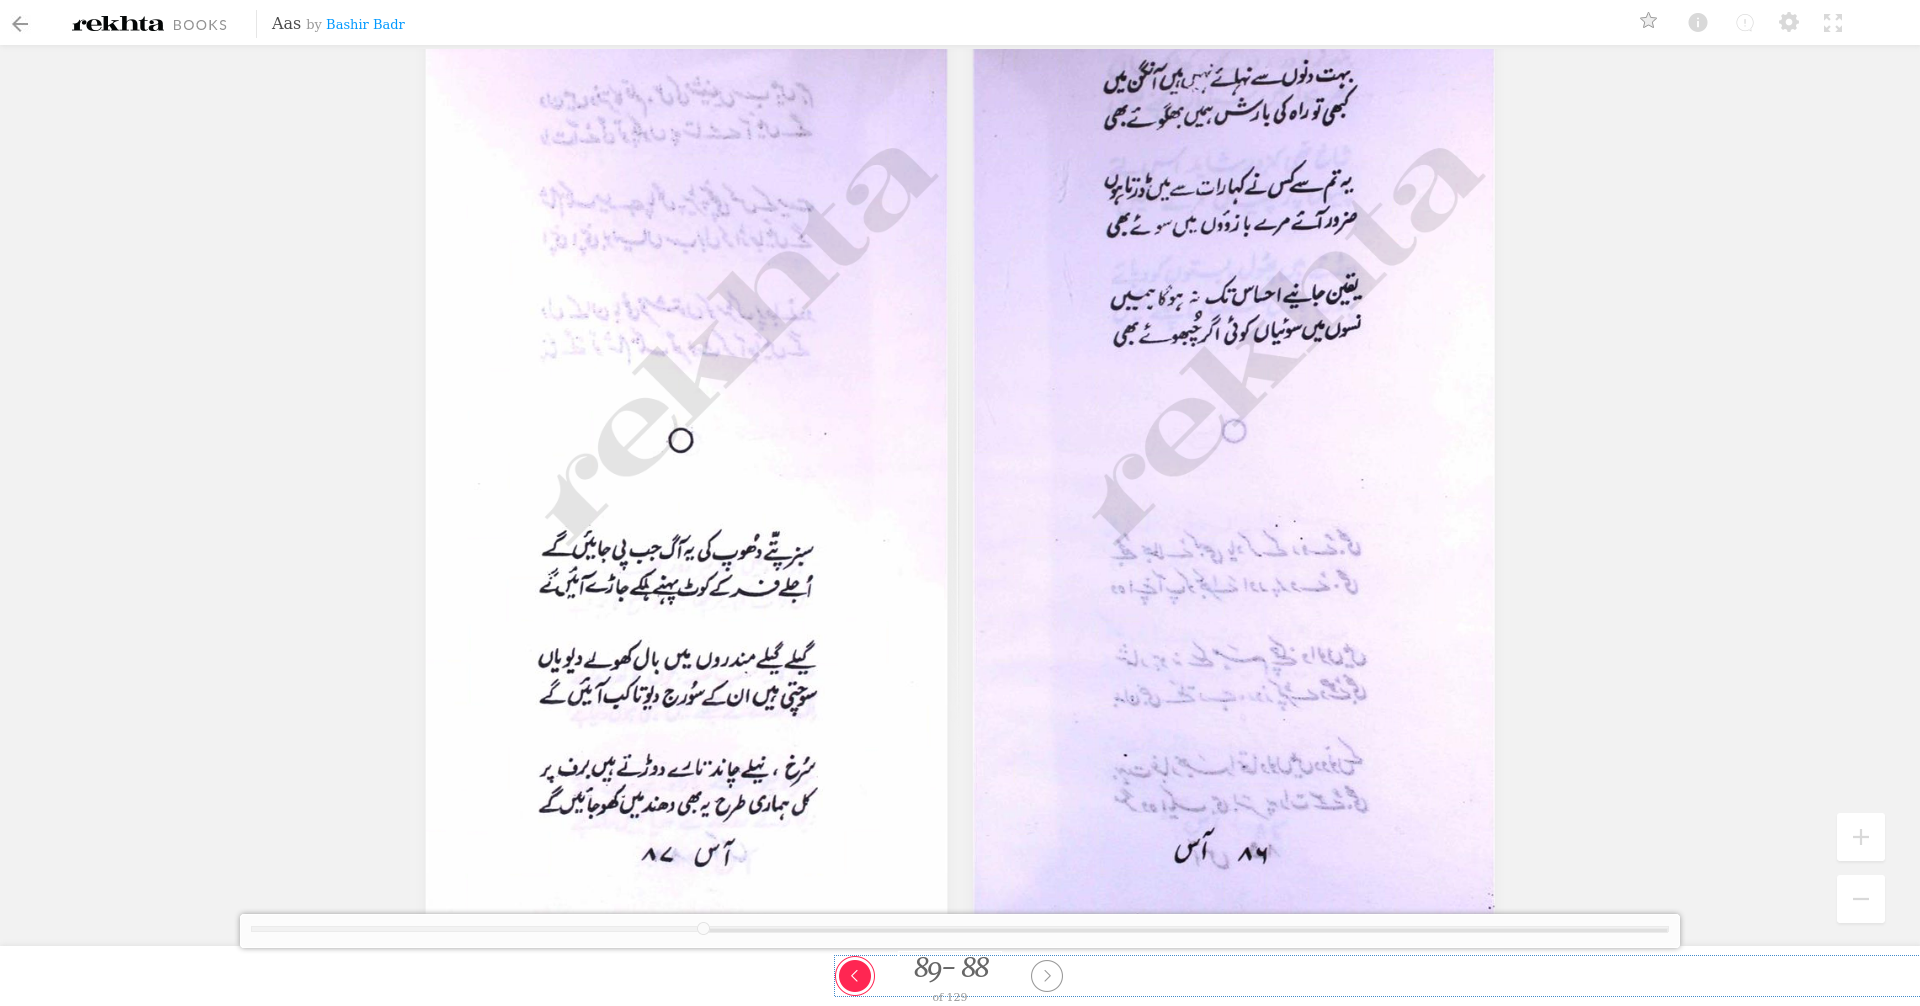 rekhta BOOKS Aas by Bashir Badr
بہت دنوں سے نہائے نہیں ہیں آنگن میں
کبھی تو راہ کی بارش ہمیں بھگوئے بھی
یہ تم سے کس نے کہا رات سے میں ڈرتا ہوں
ضرور آئے مرے بازوؤں میں سوئے بھی
یقین جانیے احساس تک نہ ہوگا ہمیں
نسوں میں سوئیاں کوئی اگر چُبھوئے بھی
۸۶ آس
rekhta
سبز پتّے دُھوپ کی یہ آگ جب پی جائیں گے
اُجلے فر کے کوٹ پہنے ہلکے جاڑے آئیں گے
گیلے گیلے مندروں میں بال کھولے دیویاں
سوچتی ہیں ان کے سُورج دیوتا کب آئیں گے
سُرخ ، نیلے چاند تارے دوڑتے ہیں برف پر
کل ہماری طرح یہ بھی دھند میں کھو جائیں گے
آس ۸۷
rekhta
89- 88
of 129